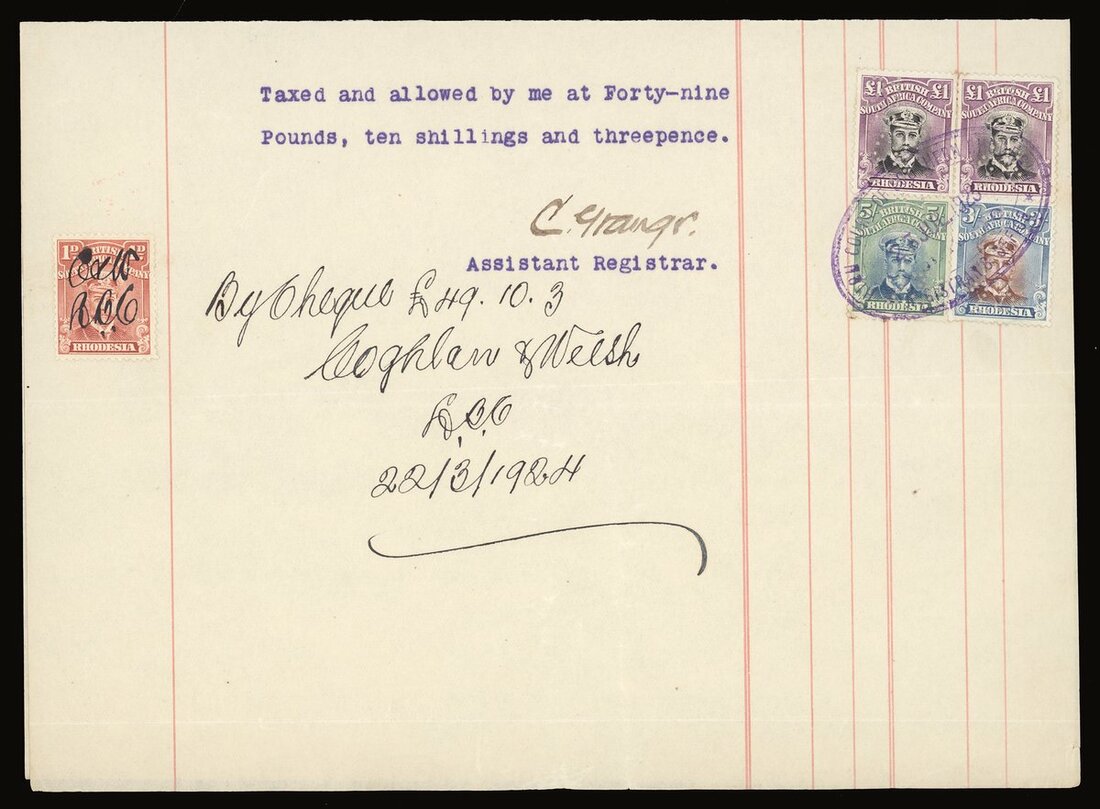 Taxed and allowed by me at Forty-nine
Pounds, ten shillings and threepence.
Assistant Registrar.
By Cheque £49. 10. 3
Coghlan & Welsh
22/3/1924
1D
BRITISH
SOUTH AFRICA COMPANY
RHODESIA
£1 BRITISH £1
SOUTH AFRICA COMPANY
RHODESIA
£1 BRITISH £1
SOUTH AFRICA COMPANY
RHODESIA
5/- BRITISH
3/- BRITISH 3/-
RHODESIA